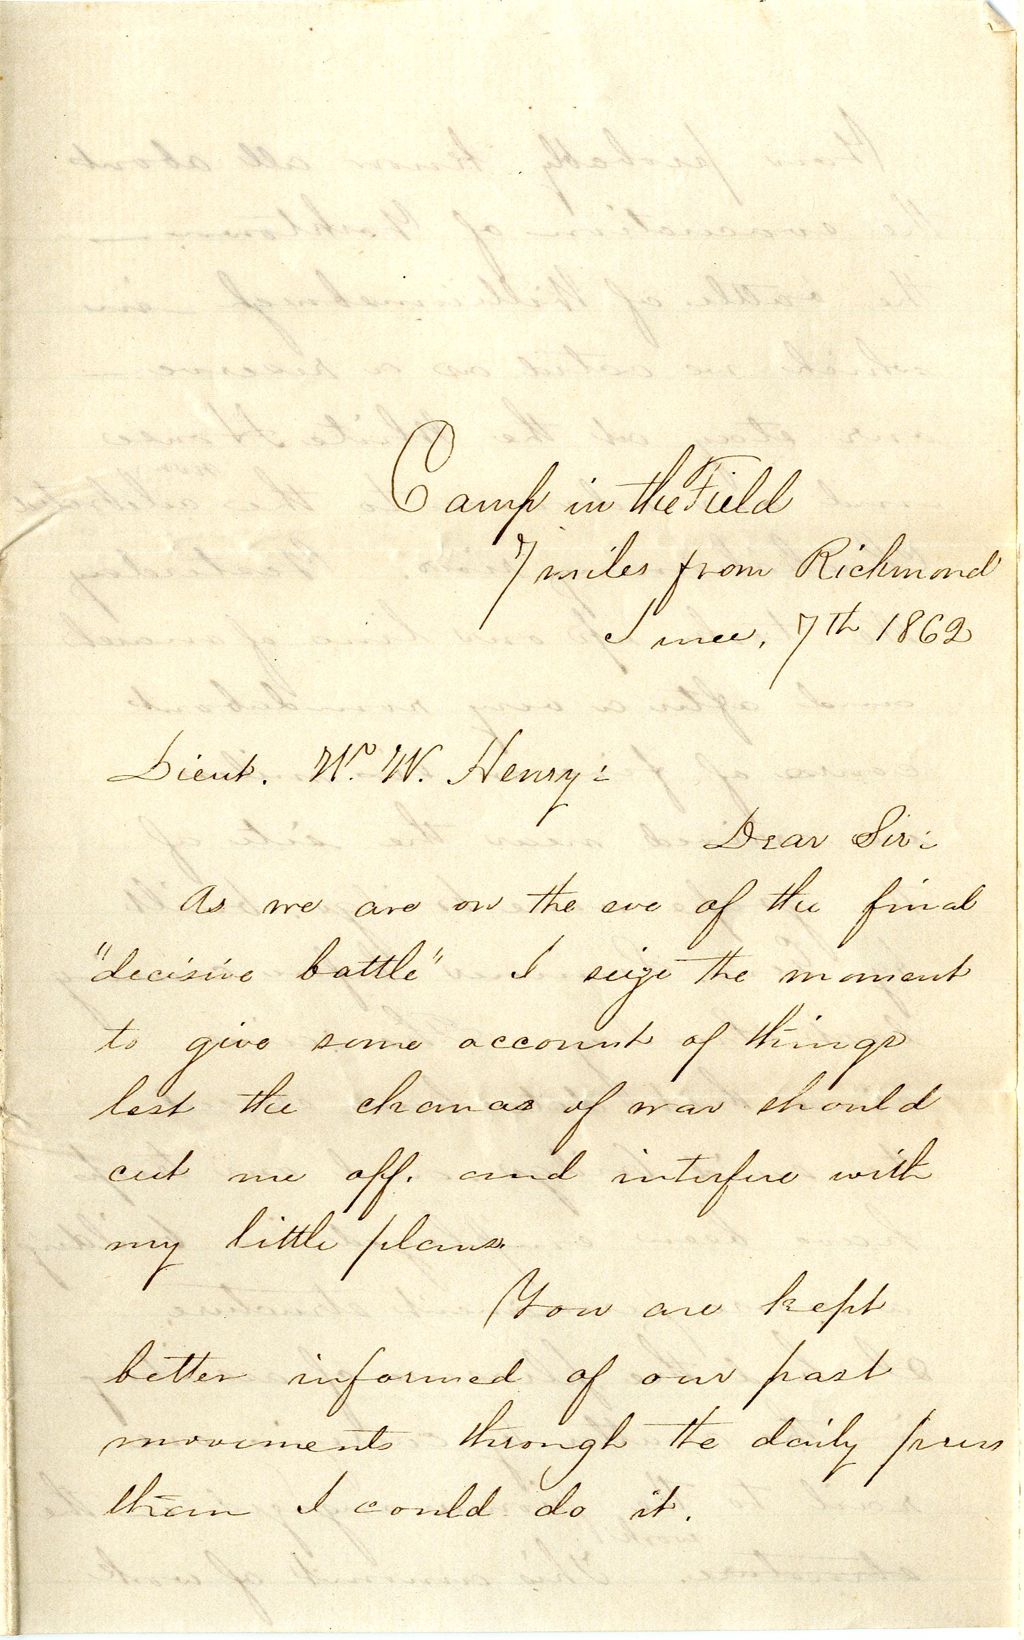 Camp in the Field
7 miles from Richmond
June, 7th 1862
Lieut. Wm. W. Henry:
Dear Sir:
As we are on the eve of the final
"decisive battle" I seize the moment
to give some account of things
lest the chances of war should
cut me off. and interfere with
my little plans.
You are kept
better informed of our past
movements through the daily press
than I could do it.